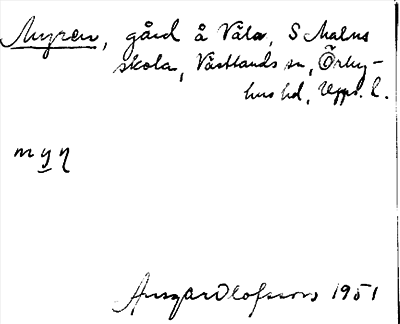 Myren, gård å Våla, S Malms
skola, Västlands sn, Örby-
hus hd, Upps. l.
myn
Ansgar Olofsson 1951